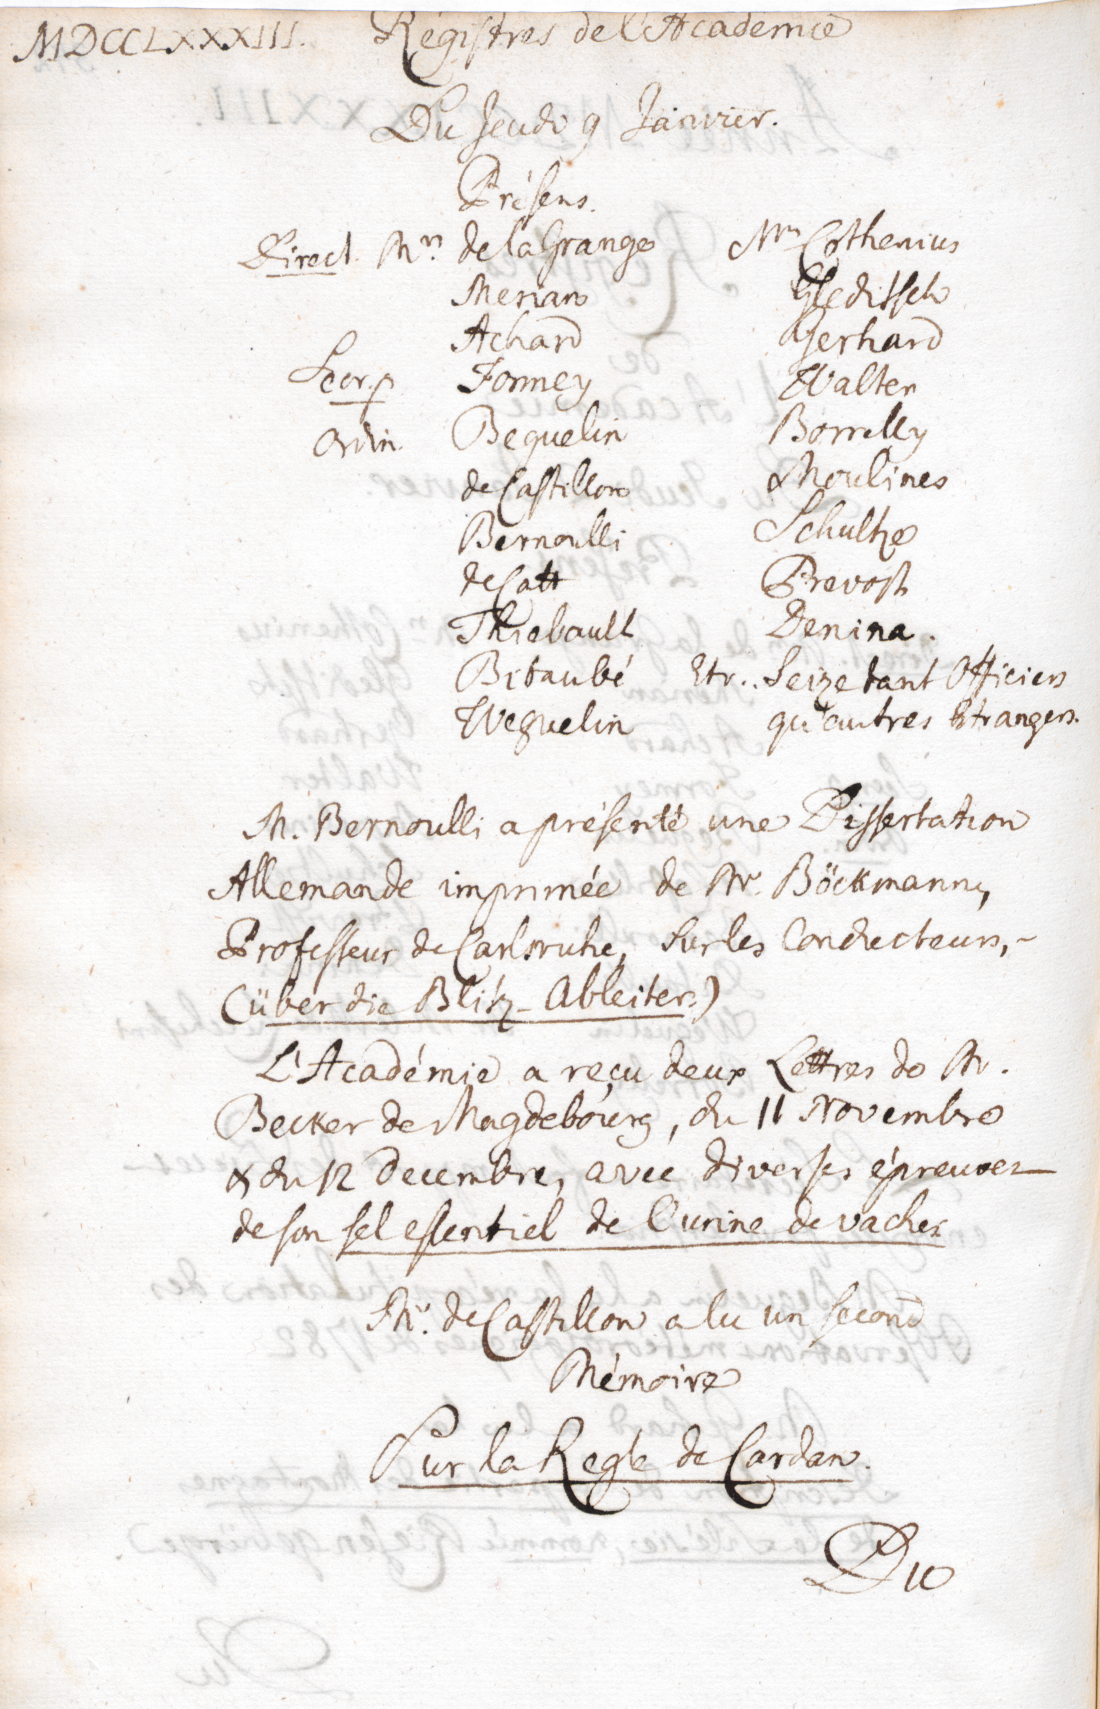 MDCCLXXXIII. Régistres de l'Academie
Du Jeudi 9 Janvier.
Présens.
Direct. Mrs. de la Grange
Merian
Achard
Secr. p. Formey
Ordin. Beguelin
de Castillon
Bernoulli
de Catt
Thiebault
Bitaubé
Weguelin
Mrs Cothenius
Gleditsch
Gerhard
Walter
Borrelly
Moulines
Schultze
Prevost
Denina.
Etr.. Seize tant Officiers
qu'autres Etrangers.
M. Bernoulli a présenté une Dissertation
Allemande imprimée de Mr. Böckmann,
Professeur de Carlsruhe, sur les Conducteurs,
(über die Blitz-Ableiter.)
L'Académie a reçu deux Lettres de Mr.
Becker de Magdebourg, du 11 Novembre
& du 12 Decembre, avec diverses épreuves
de son sel essentiel de l'urine de vaches
Mr. de Castillon a lu un second
Mémoire
Sur la Regle de Cardan.
Du